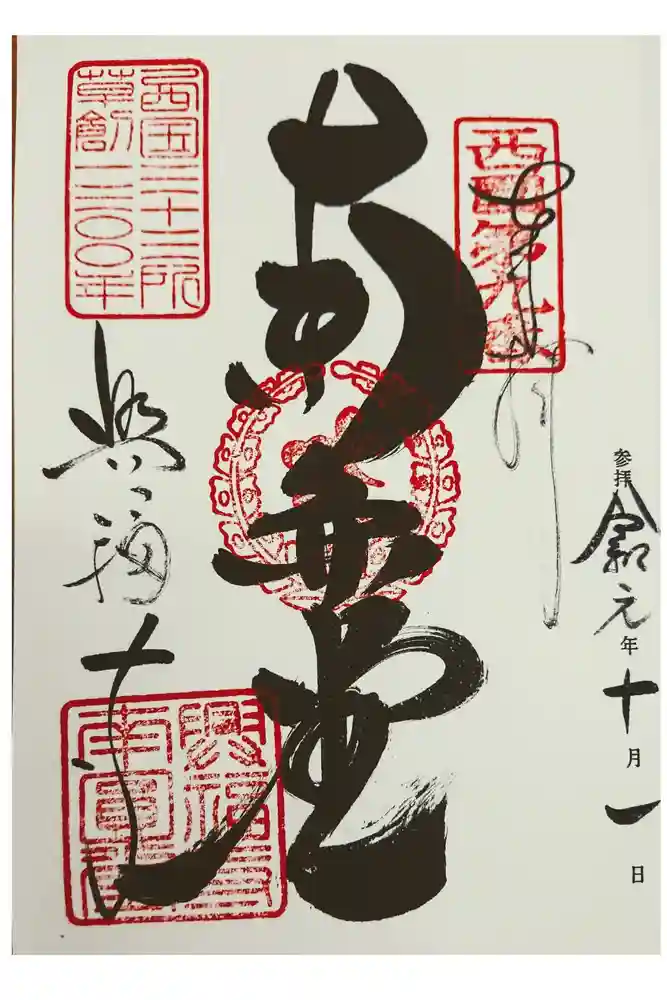 参拝 令和元年十月一日
奉拝
西国第九番
南無堂
西国三十三所
草創一三〇〇年
興福寺
興福寺
南円堂